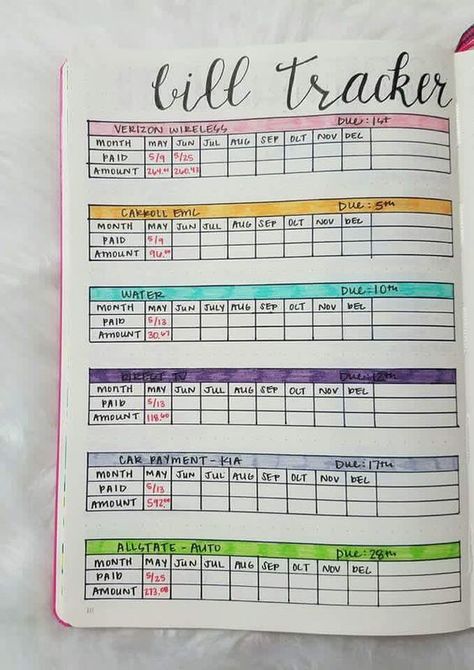 bill Tracker
VERIZON WIRELESS DUE: 1st
MONTH MAY JUN JUL AUG SEP OCT NOV DEC
PAID 5/9 5/25
AMOUNT 264.00 260.43
CARROLL EMC DUE: 5th
MONTH MAY JUN JUL AUG SEP OCT NOV DEC
PAID 5/9
AMOUNT 96.00
WATER DUE: 10th
MONTH MAY JUN JULY AUG SEP OCT NOV DEC
PAID 5/13
AMOUNT 30.67
DIRECT TV DUE: 12th
MONTH MAY JUN JUL AUG SEP OCT NOV DEC
PAID 5/13
AMOUNT 118.60
CAR PAYMENT - KIA DUE: 17th
MONTH MAY JUN JUL AUG SEP OCT NOV DEC
PAID 5/13
AMOUNT 592.00
ALLSTATE - AUTO DUE: 28th
MONTH MAY JUN JUL AUG SEP OCT NOV DEC
PAID 5/25
AMOUNT 273.08